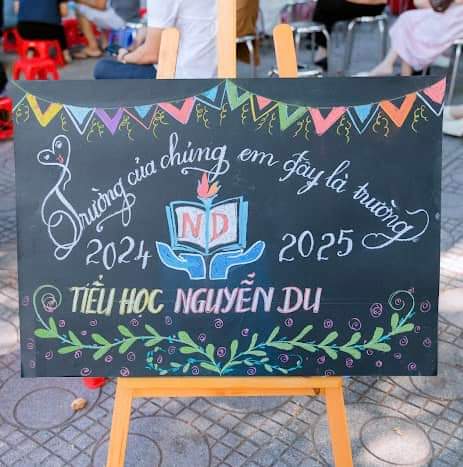 Trường của chúng em đây là trường
ND
2024 2025
TIỂU HỌC NGUYỄN DU